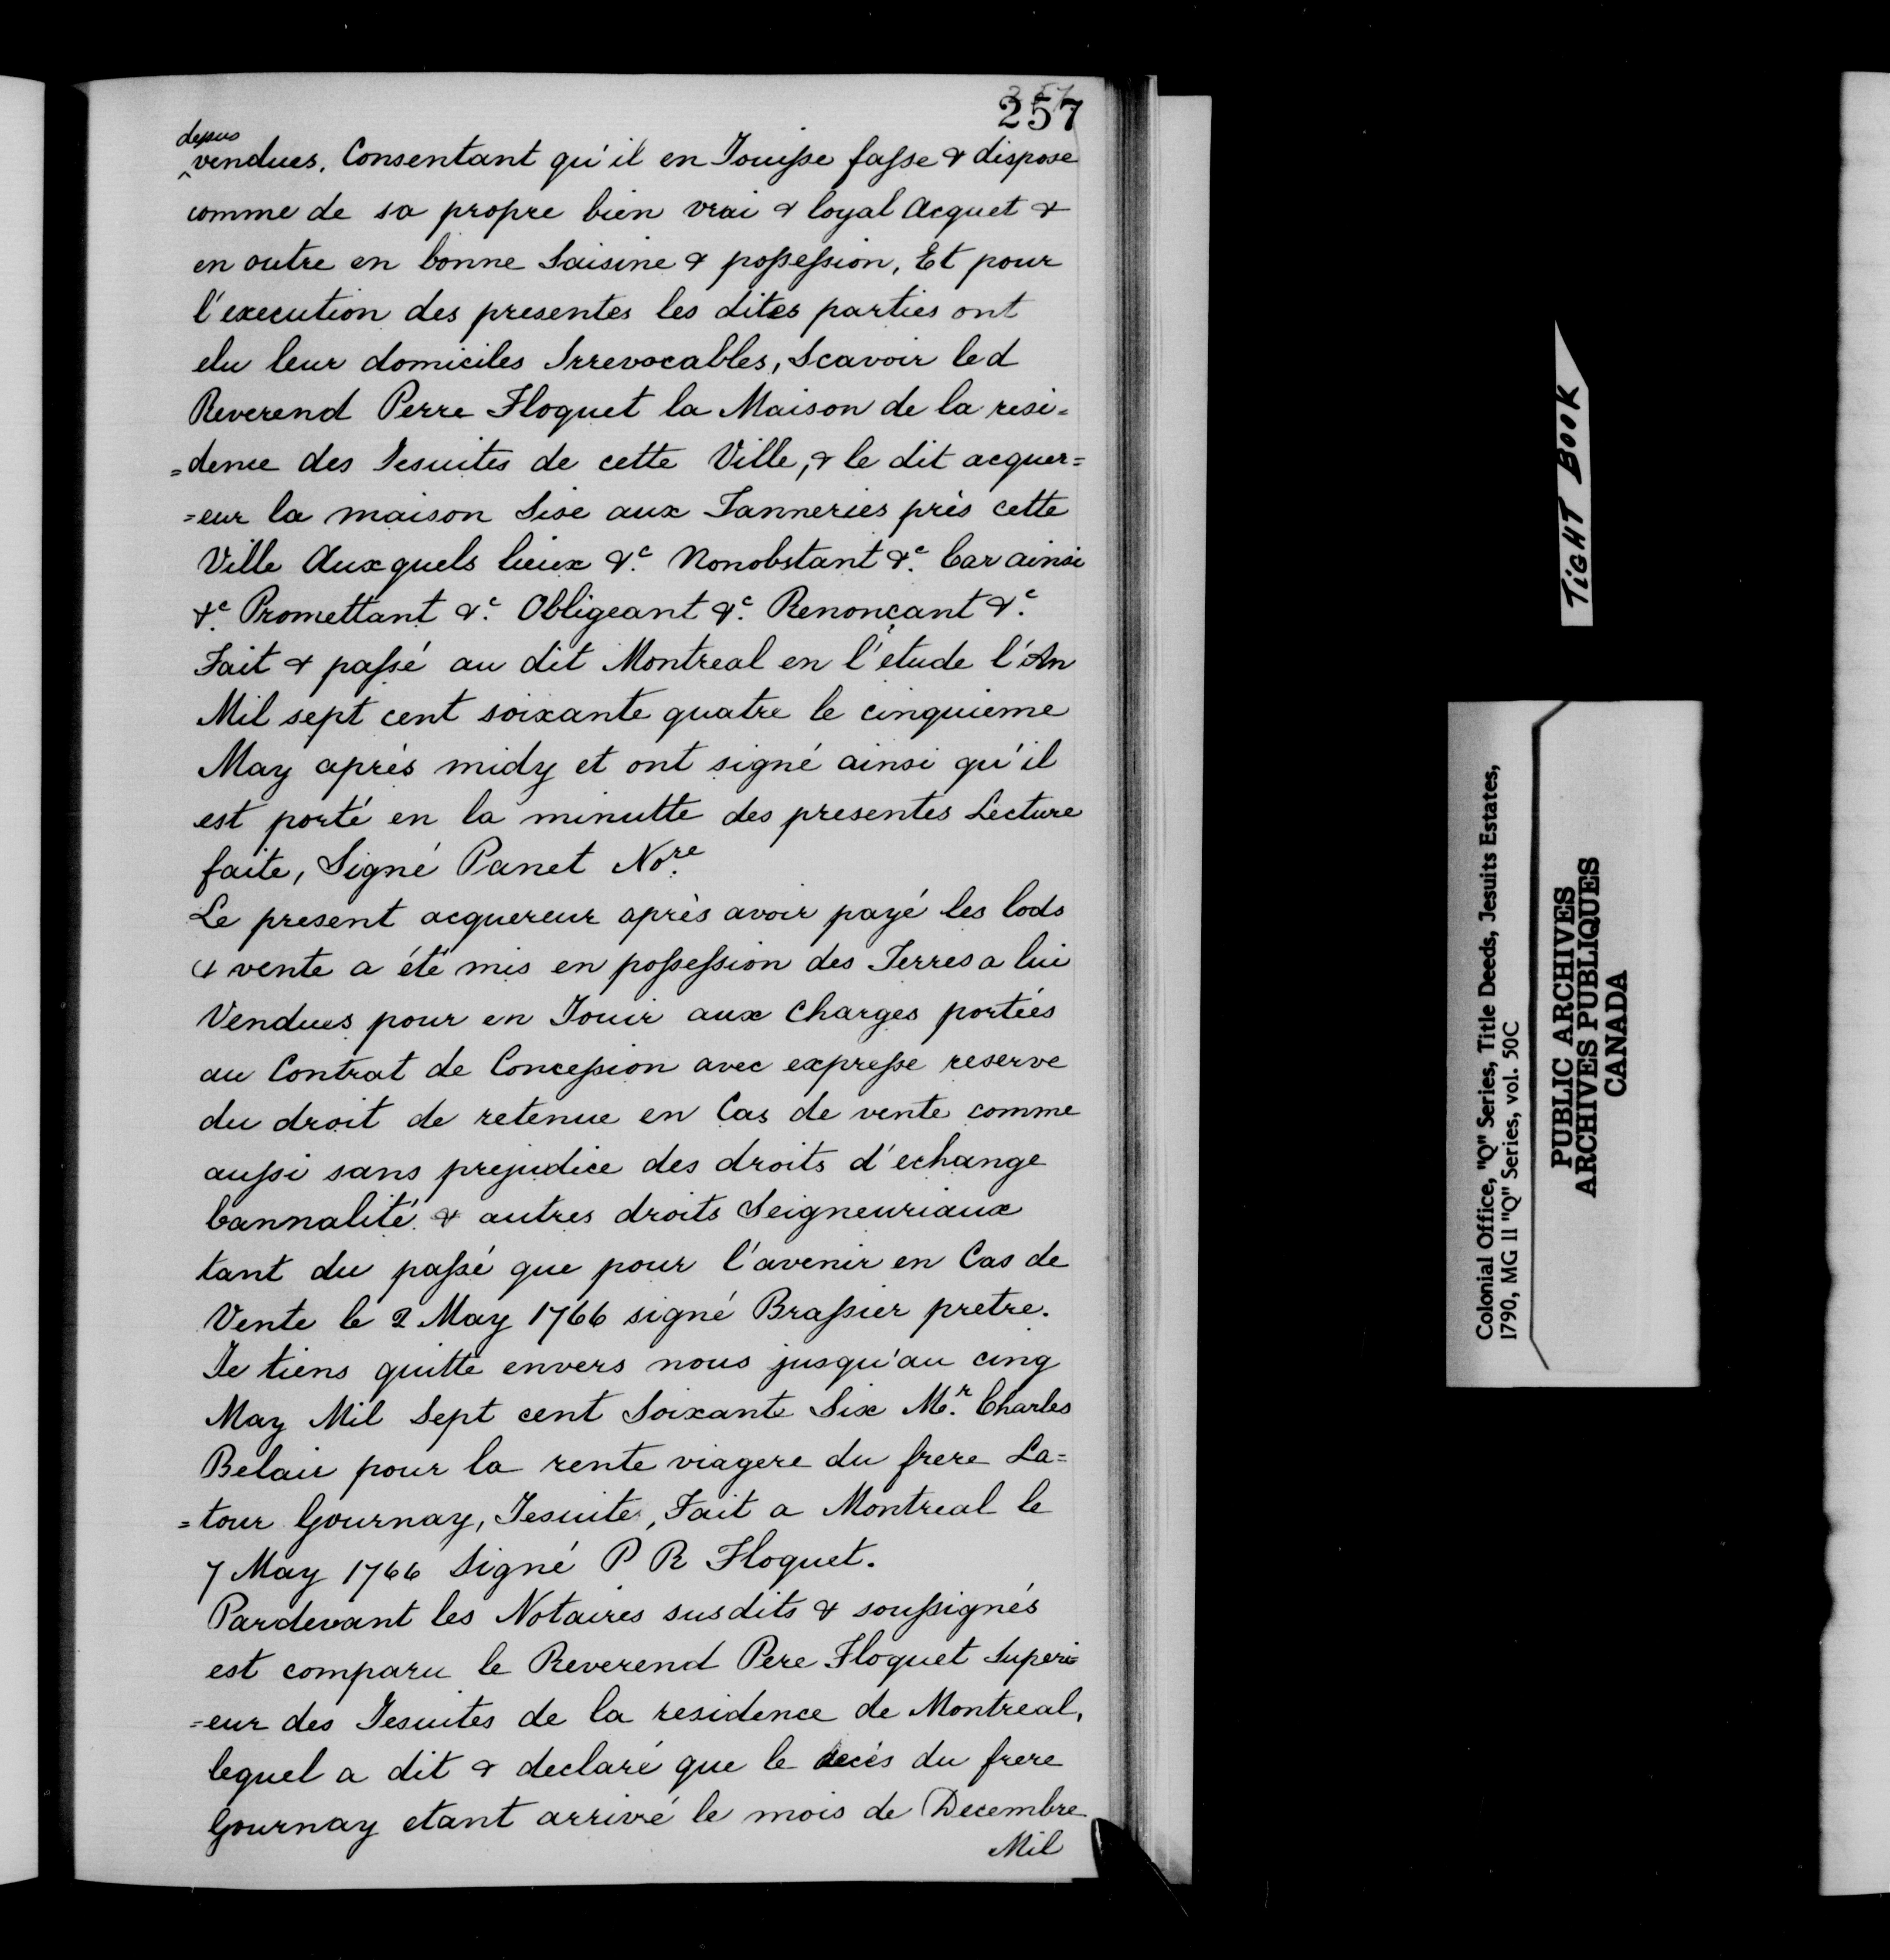 257
depus
vendues, Consentant qu'il en Jouisse fasse & dispose
comme de sa propre bien vrai & loyal Acquet &
en outre en bonne Saisine & possession, Et pour
l'execution des presentes les dites parties ont
elu leur domiciles Irrevocables, Scavoir led
Reverend Perre Floquet la Maison de la resi=
=dence des Jesuites de cette Ville, & le dit acquer=
=eur la maison Sise aux Tanneries près cette
Ville Auxquels lieux &c. Nonobstant &c. Car ainsi
&c. Promettant &c. Obligeant &c. Renonçant &c.
Fait & passé au dit Montreal en l'etude l'An
Mil sept cent soixante quatre le cinquieme
May après midy et ont signé ainsi qu'il
est porté en la minutte des presentes Lecture
faite, Signé Panet Nore.
Le present acquereur après avoir payé les lods
& vente a été mis en possession des Terres a lui
Vendues pour en Jouir aux Charges portées
au Contrat de Concession avec expresse reserve
du droit de retenue en Cas de vente comme
aussi sans prejudice des droits d'echange
bannalité & autres droits Seigneuriaux
tant du passé que pour l'avenir en Cas de
Vente le 2 May 1766 signé Brassier pretre.
Je tiens quitte envers nous jusqu'au cinq
May Mil Sept cent Soixante Six Mr. Charles
Belair pour la rente viagere du frere La=
=tour Gournay, Jesuite, Fait a Montreal le
7 May 1766 Signé P R Floquet.
Pardevant les Notaires susdits & soussignés
est comparu le Reverend Pere Floquet Superi=
=eur des Jesuites de la residence de Montreal,
lequel a dit & declaré que le decès du frere
Gournay etant arrivé le mois de Decembre
Mil
TIGHT BOOK
Colonial Office, "Q" Series, Title Deeds, Jesuits Estates,
1790, MG 11 "Q" Series, vol. 50C
PUBLIC ARCHIVES
ARCHIVES PUBLIQUES
CANADA